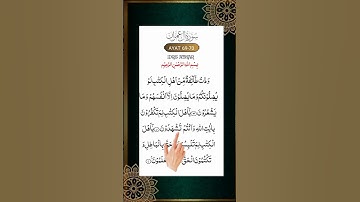 سورة آل عمران
AYAT
بِسْمِ اللهِ الرَّحْمٰنِ الرَّحِيْمِ
وَدَّتْ طَّآئِفَةٌ مِّنْ اَهْلِ الْكِتٰبِ لَوْ
يُضِلُّوْنَكُمْ وَمَا يُضِلُّوْنَ اِلَّآ اَنْفُسَهُمْ وَمَا
يَشْعُرُوْنَ يٰٓاَهْلَ الْكِتٰبِ لِمَ تَكْفُرُوْنَ
بِاٰيٰتِ اللهِ وَاَنْتُمْ تَشْهَدُوْنَ يٰٓاَهْلَ
الْكِتٰبِ لِمَ تَلْبِسُوْنَ الْحَقَّ بِالْبَاطِلِ وَ
تَكْتُمُوْنَ الْحَقَّ تَعْلَمُوْنَ